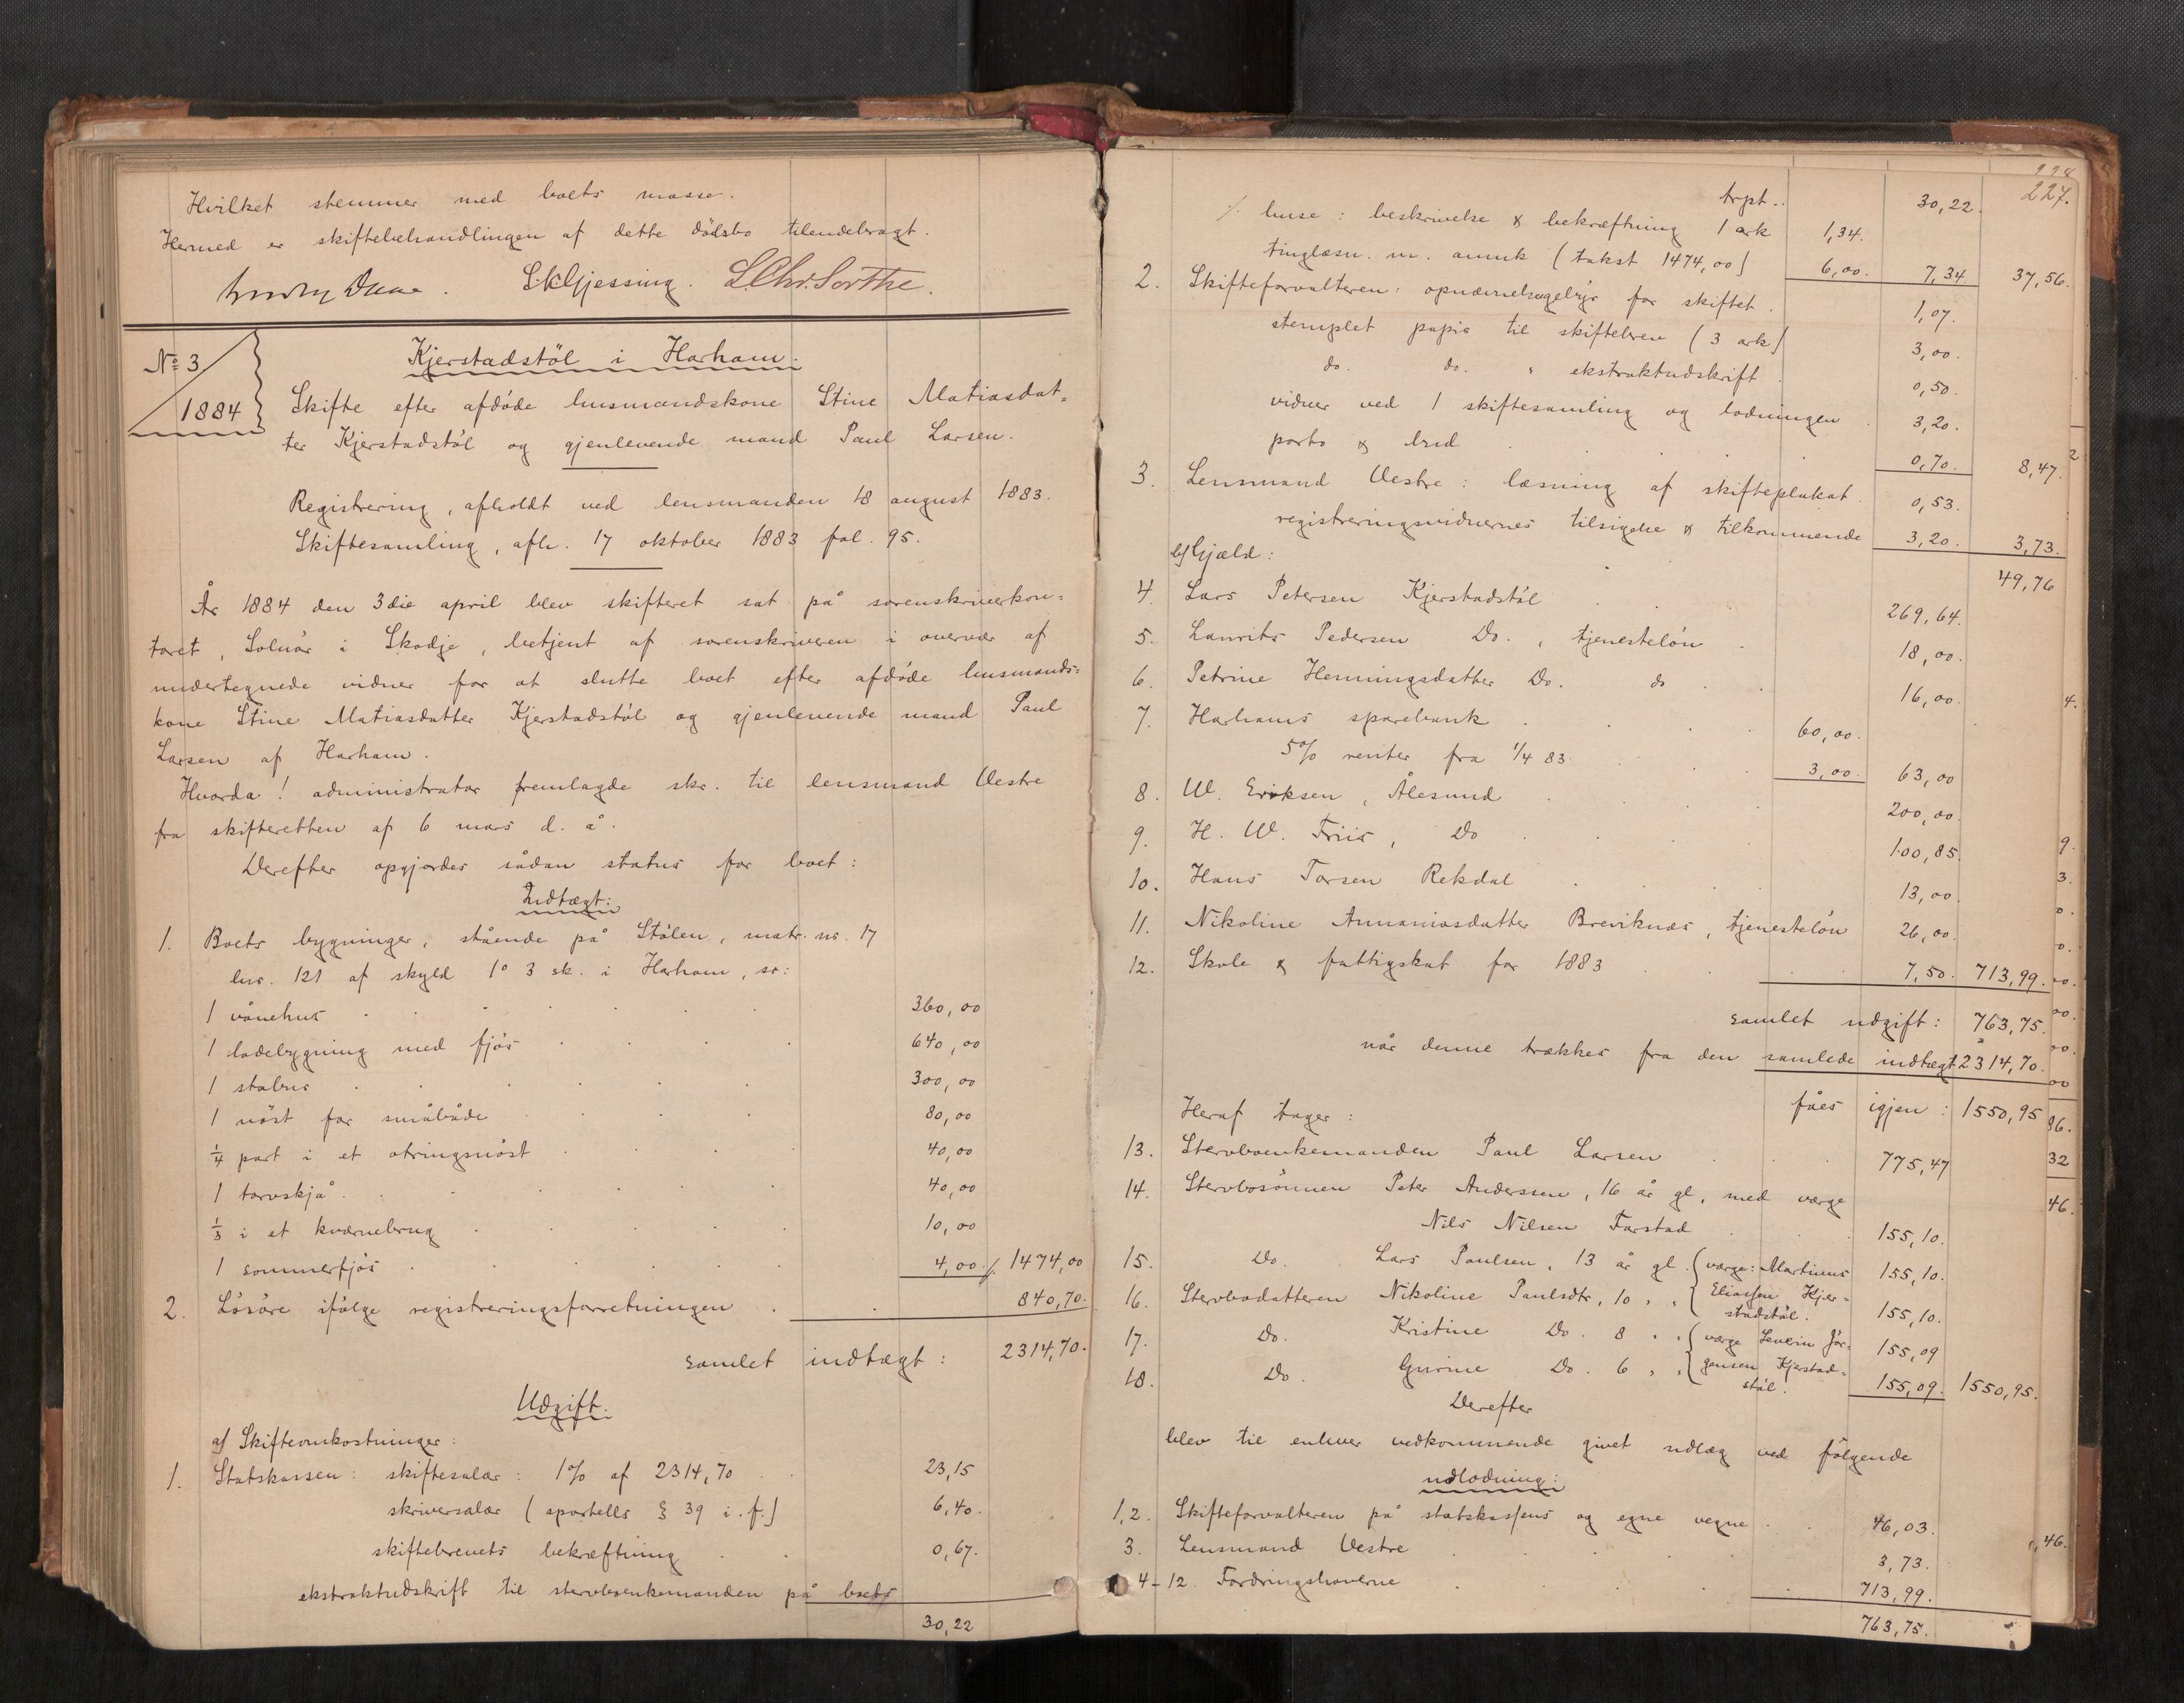 Hvilket stemmer med boets masse.
Hermed er skiftebehandlingen af dette dödsbo tilendebragt.
Daae. SkGjessing. SChr.Sorthe.
No 3
1884
Kjerstadstöl i Harham.
Skifte efter afdöde husmandskone Stine Matiasdat-
ter Kjerstadstöl og gjenlevende mand Paul Larsen.
Registrering, afholdt ved lensmanden 18 august 1883.
Skiftesamling, afh. 17 oktober 1883 fol. 95.
År 1884 den 3die april blev skifteret sat på sorenskriverkon-
toret, Solnör i Skodje, betjent af sorenskriveren i overvær af
undertegnede vidner for at slutte boet efter afdöde husmands-
kone Stine Matiasdatter Kjerstadstöl og gjenlevende mand Paul
Larsen af Harham.
Hvorda! administrator fremlagde skr. til lensmand Vestre
fra skifteretten af 6 mars d. å.
Derefter opgjordes sådan status for boet:
Indtægt:
1. Boets bygninger, stående på Stölen, matr. nr. 17
lnr. 121 af skyld 1o 3 sk. i Harham, sr:
1 vånehus 360,00
1 ladebygning med fjös 640,00
1 stabur 300,00
1 nöst for småbåde 80,00
1/4 part i et otringsnöst 40,00
1 torvskjå 40,00
1/3 i et kværnebrug 10,00
1 sommerfjös 4,00 ./. 1474,00
2. Lösöre ifölge registreringsforretningen 840,70.
samlet indtægt: 2314,70.
Udgift.
a) Skifteomkostninger:
1. Statskassen: skiftesalær: 1% af 2314,70 23,15
skriversalær (sportells § 39 i. f.) 6,40.
skiftebrevets bekræftning 0,67.
ekstraktudskrift til stervboenkemanden på boets
30,22
227.
trpt. 30,22.
./. huse: beskrivelse & bekræftning 1 ark 1,34.
tinglæsn. m. anmk (takst 1474,00) 6,00. 7,34. 37,56.
2. Skifteforvalteren: opnævnelsesgebyr for skiftet 1,07.
stemplet papir til skiftebrev (3 ark) 3,00.
do. do. " ekstraktudskrift 0,50.
vidner ved 1 skiftesamling og lodningen 3,20.
porto & bud 0,70. 8,47.
3. Lensmand Vestre: læsning af skifteplakat 0,53.
registreringsvidnernes tilsigelse & tilkommende 3,20. 3,73.
b) Gjæld: 49,76
4. Lars Petersen Kjerstadstöl 269,64.
5. Laurits Pedersen Do., tjenestelön 18,00.
6. Petrine Henningsdatter Do. do 16,00.
7. Harhams sparebank 60,00.
5% renter fra 1/4 83 3,00. 63,00
8. W. Eriksen, Ålesund 200,00.
9. H. W. Friis, Do 100,85
10. Hans Torsen Rekdal 13,00.
11. Nikoline Annaniasdatter Breviknæs, tjenestelön 26,00.
12. Skole & fattigskat for 1883 7,50. 713,99.
samlet udgift: 763,75.
når denne trækkes fra den samlede indtægt 2314,70.
fåes igjen: 1550,95
Heraf tager:
13. Stervboenkemanden Paul Larsen 775,47
14. Stervbosönnen Peter Anderssen, 16 år gl, med værge
Nils Nilsen Farstad 155,10.
15. Do. Lars Paulsen, 13 år gl. (værge: Martinus 155,10.
16. Stervbodatteren Nikoline Paulsdtr, 10 " " Eliassen Kjer-
stadstöl. 155,10.
17. Do. Kristine Do. 8 " " (værge Severin Jör- 155,09
18. Do. Gurine Do. 6 " " gensen Kjerstad-
stöl. 155,09. 1550,95.
Derefter
blev til enhver vedkommende givet udlæg ved fölgende
udlodning:
1,2. Skifteforvalteren på statskassens og egne vegne 46,03.
3. Lensmand Vestre 3,73.
4-12. Fordringshaverne 713,99.
763,75.